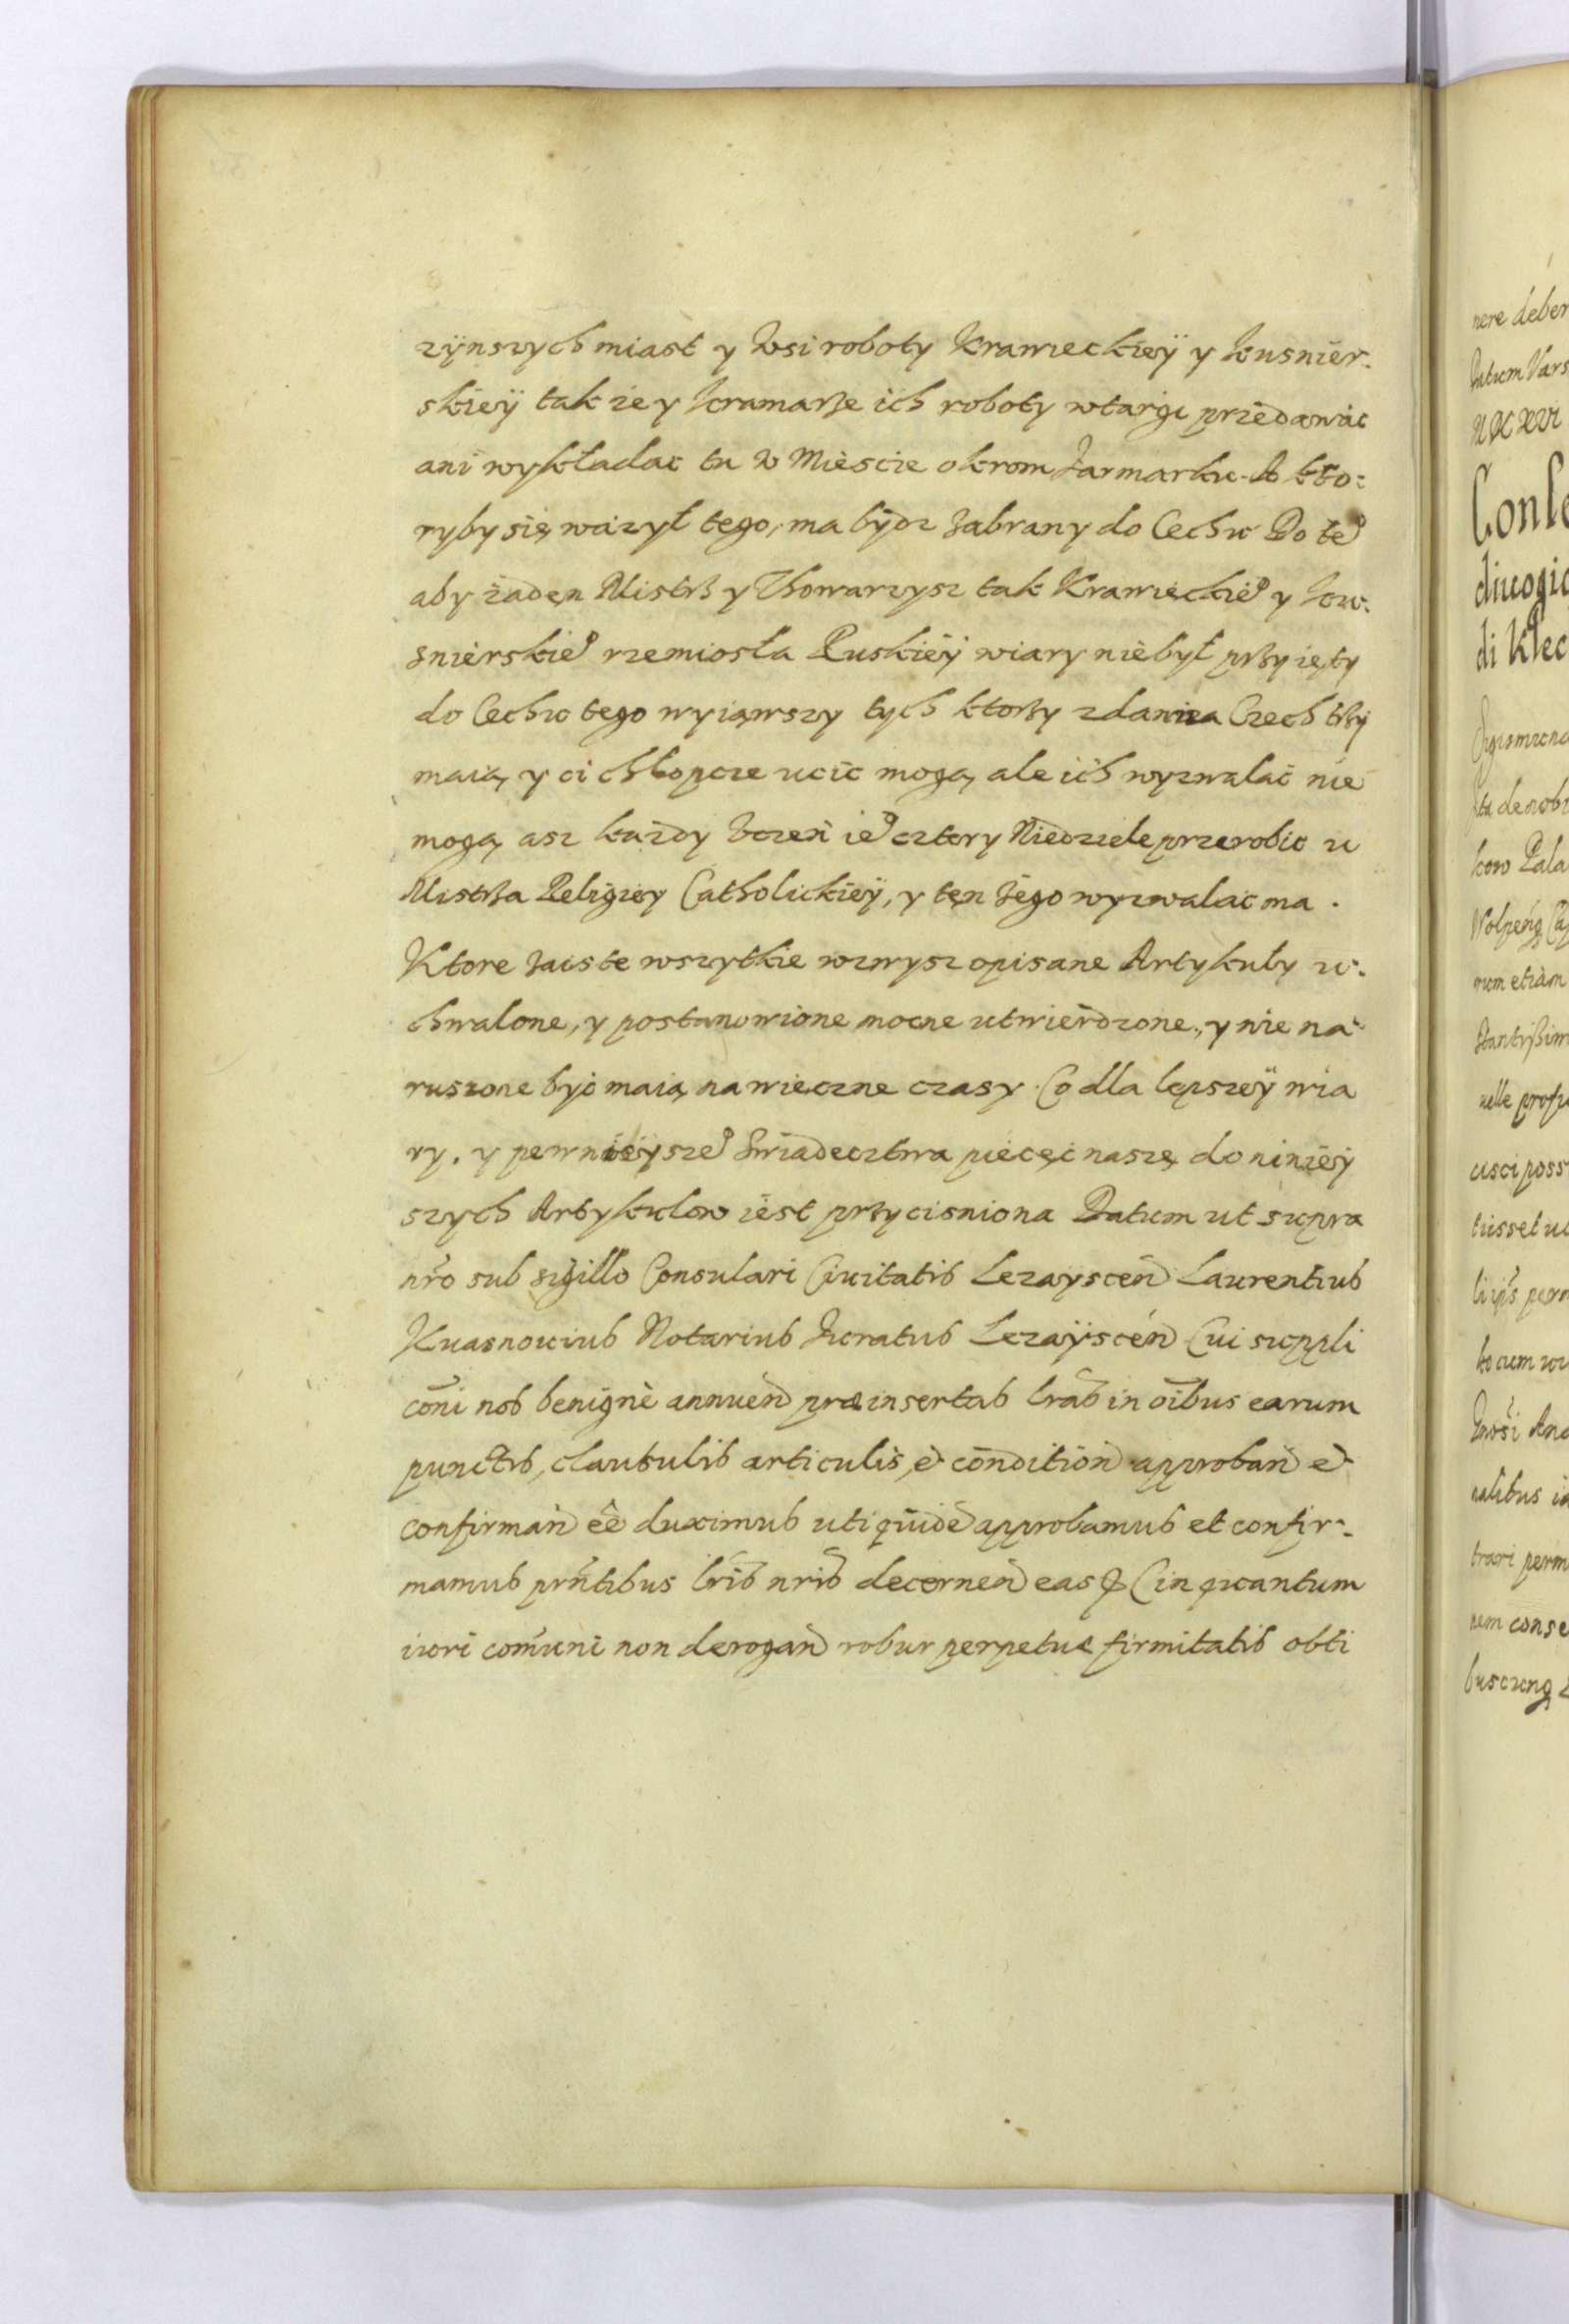 zÿnszych miast y wsi roboty Krawieckieÿ y kusnier:
skieÿ takze y kramarze ich roboty wtargu przedawac
ani wykładac tu w Miescie okrom Jarmarku. A kto:
ryby się wazył tego, ma bydz zabrany do Cechu Do te
aby żaden Mistrz y Thowarzysz tak Krawieckie y kuś:
snierskie rzemiosła Ruskieÿ wiary niebył przyięty
do Cechu tego wyiąwszy tych ktorzy zdawna Czech trzÿ
maią, y ci chłopcze ucic mogą, ale ich wyzwalać nie
mogą asz każdy Uczeń ie cztery Niedziele przerobic u
Mistrza Religiey Catholickieÿ, y ten Jego wyzwalac ma.
Ktore zaiste wszytkie wzwysz opisane Artykuły u:
chwalone, y postanowione mocne utwierdzone, y nie na:
ruszone byc maią na wieczne czasy. Co dla lepszeÿ wia
ry. y pewnieysze swiadecztwa pieczęć naszę do ninieÿ
szych Artykulow iest przycisniona Datum ut supra
nro sub sigillo Consulari Civitatis Lezaÿscen Laurentius
Kuasnouius Notarius Juratus Lezaÿscen Cui suppli
coni nob benignè annuen præinsertas lras in oibus earum
punctis, clausulis articulis, et condition approban et
confirman eê duximus uti quide approbamus et confir:
mamus prntibus lris nris decernen eas in quantum
iuori comuni non derogan robur perpetuæ firmitatis obti
nere deber
Datum Vars
di Klec
kow Pala
rum etiam
usci poss
tuisset
nem conse